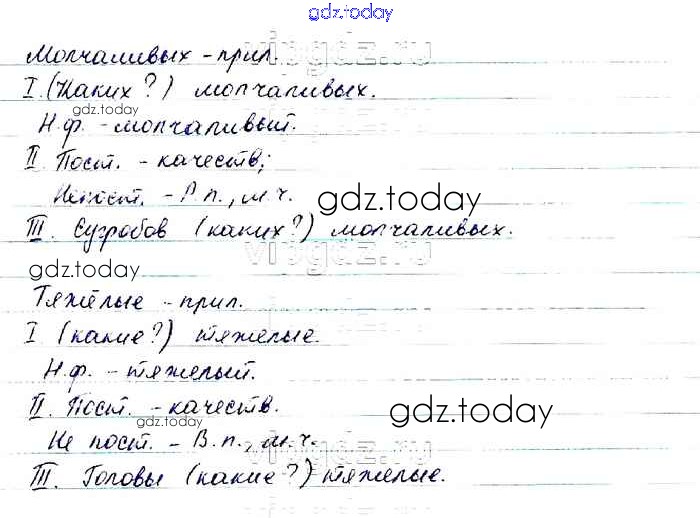 gdz.today
Молчаливых - прил.
I. (Каких?) молчаливых.
gdz.today
Н.ф. - молчаливый.
II. Пост. - качеств;
Непост. - Р.п., м.ч.
gdz.today
III. Сугробов (каких?) молчаливых.
vipgdz.ru
gdz.today
Тяжёлые - прил.
I (какие?) тяжелые.
Н.ф. - тяжелый.
II. Пост. - качеств.
gdz.today
gdz.today
Не пост. - В.п., м.ч.
III. Головы (какие?) тяжелые.